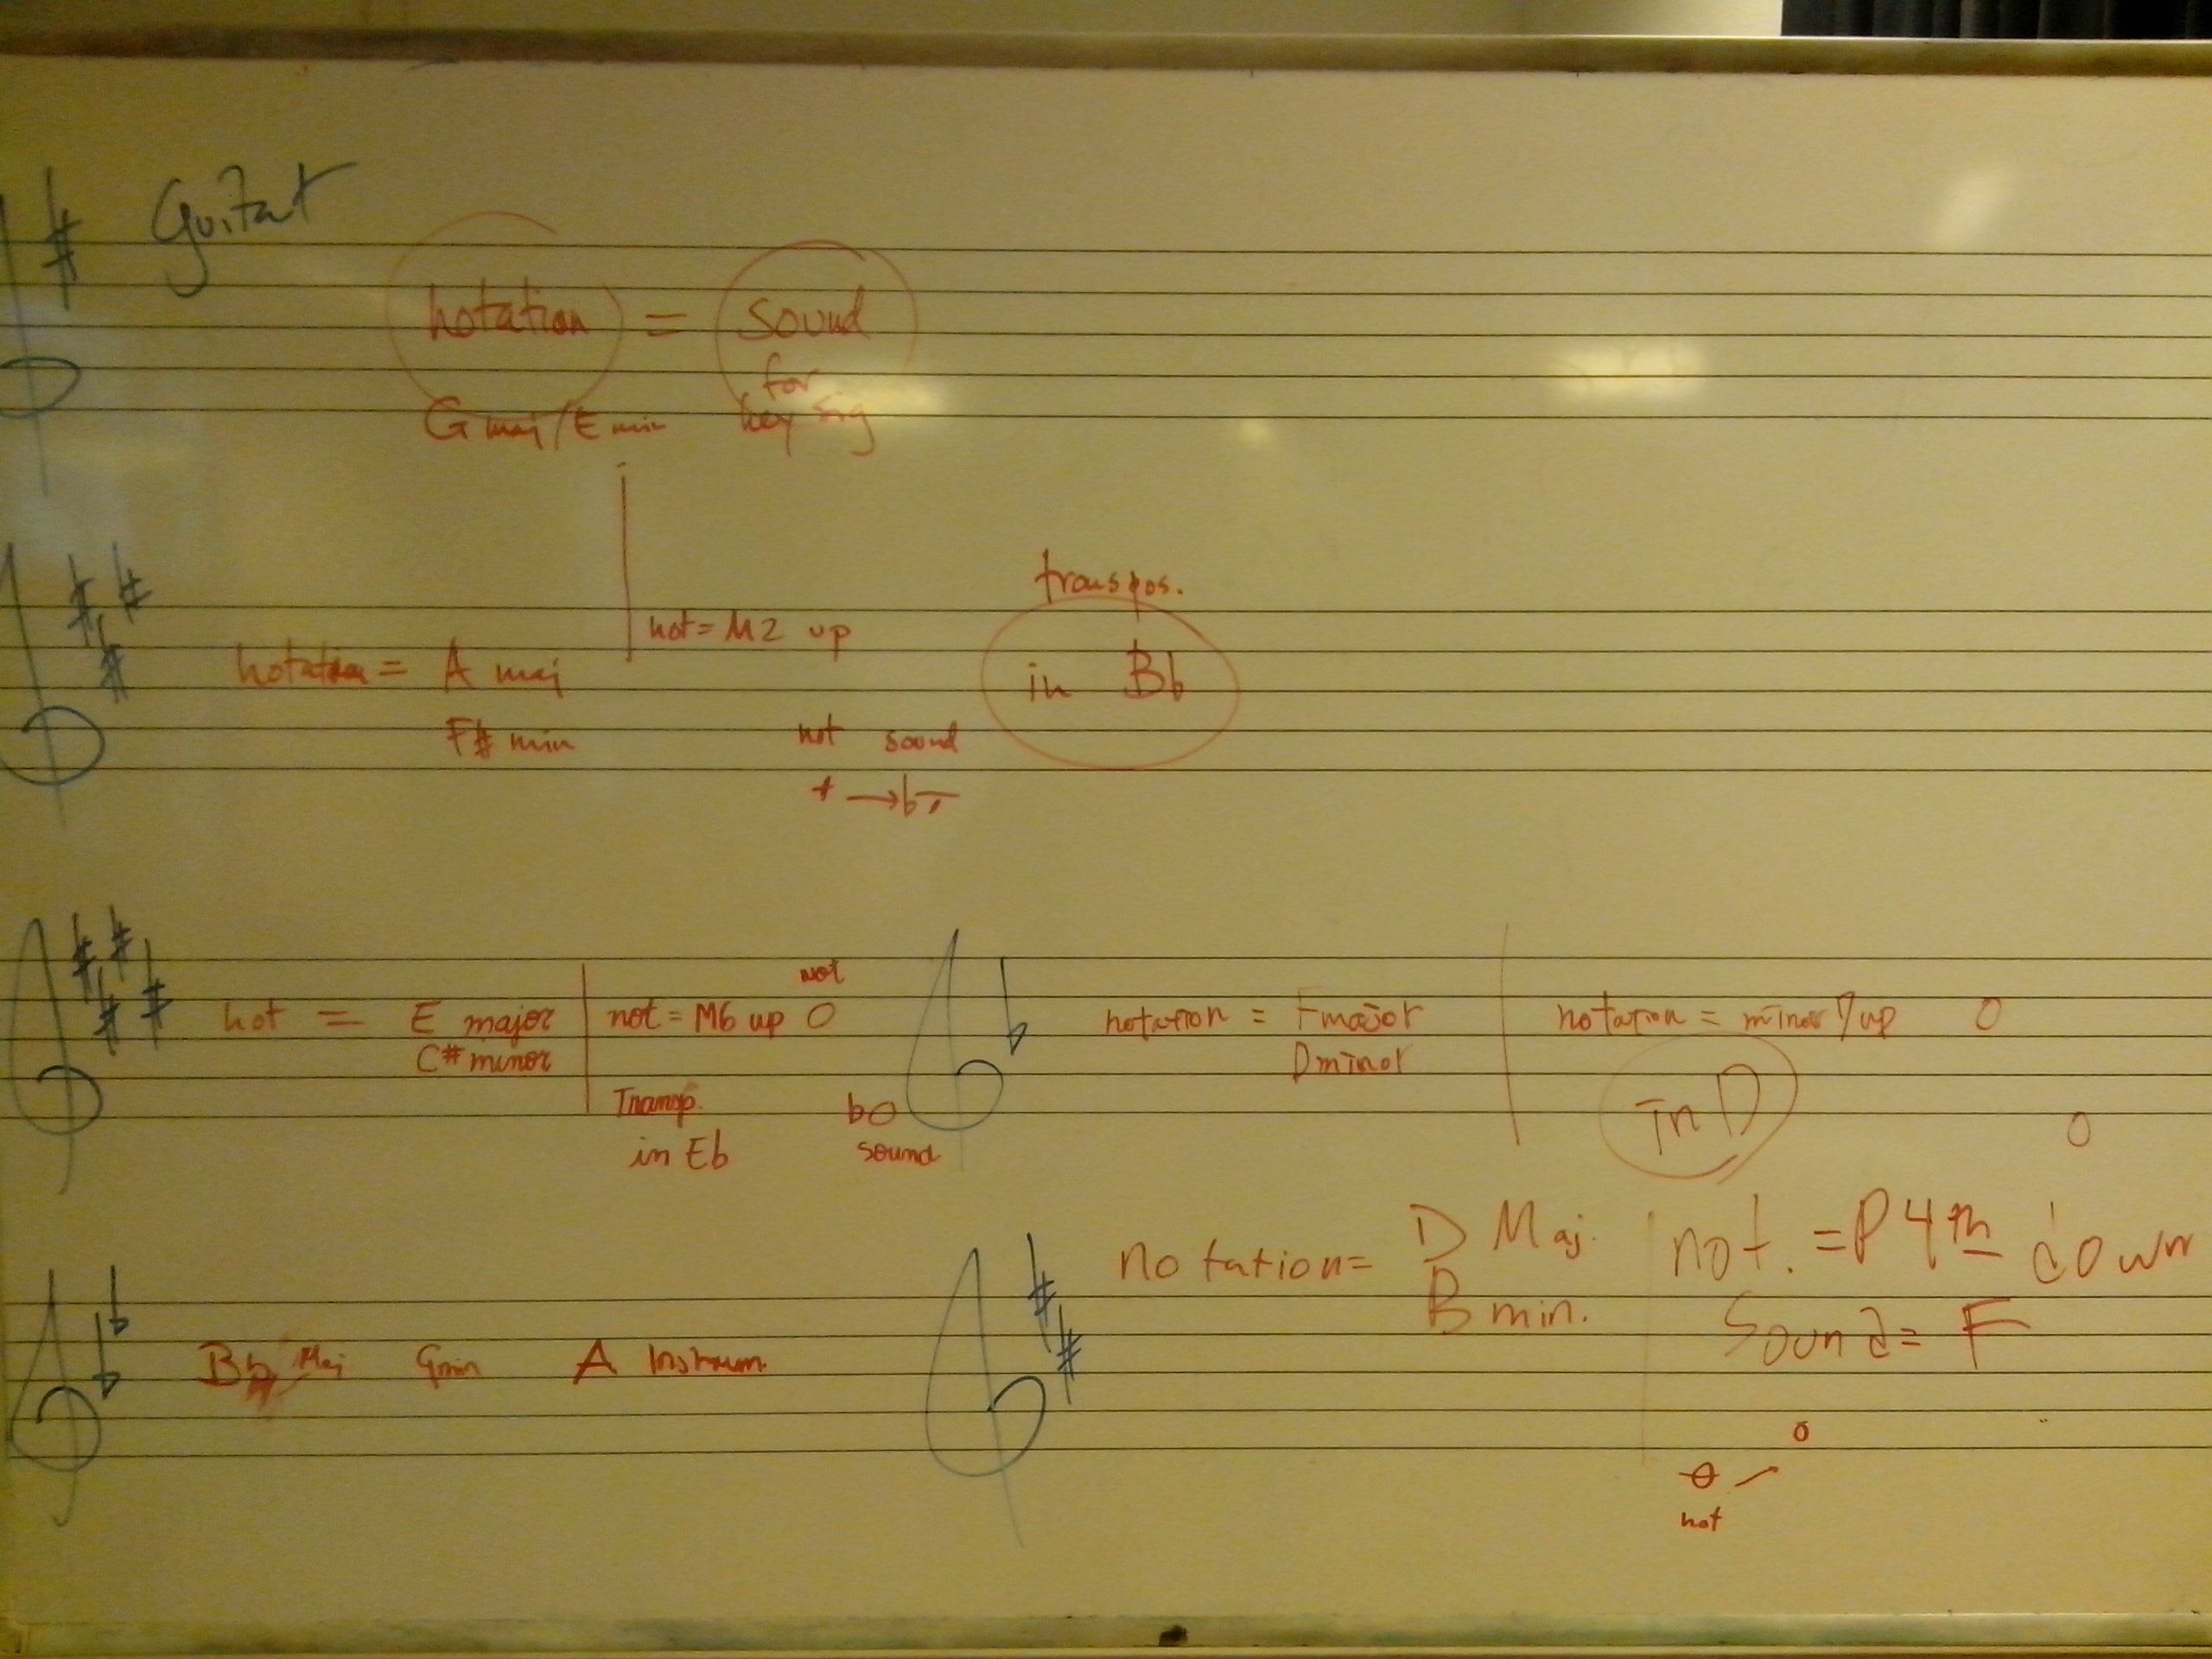 Guitar
notation = sound
for
G maj/E min key sig
transpos.
not = M2 up
notation = A maj in Bb
F# min not sound
not
not = E major not = M6 up
C# minor
Transp. b
in Eb sound
notation = F major notation = minor 7 up
D minor
in D
notation = D Maj. not. = P 4th down
B min. Sound = F
Bb Maj Gmin A Instrum.
not